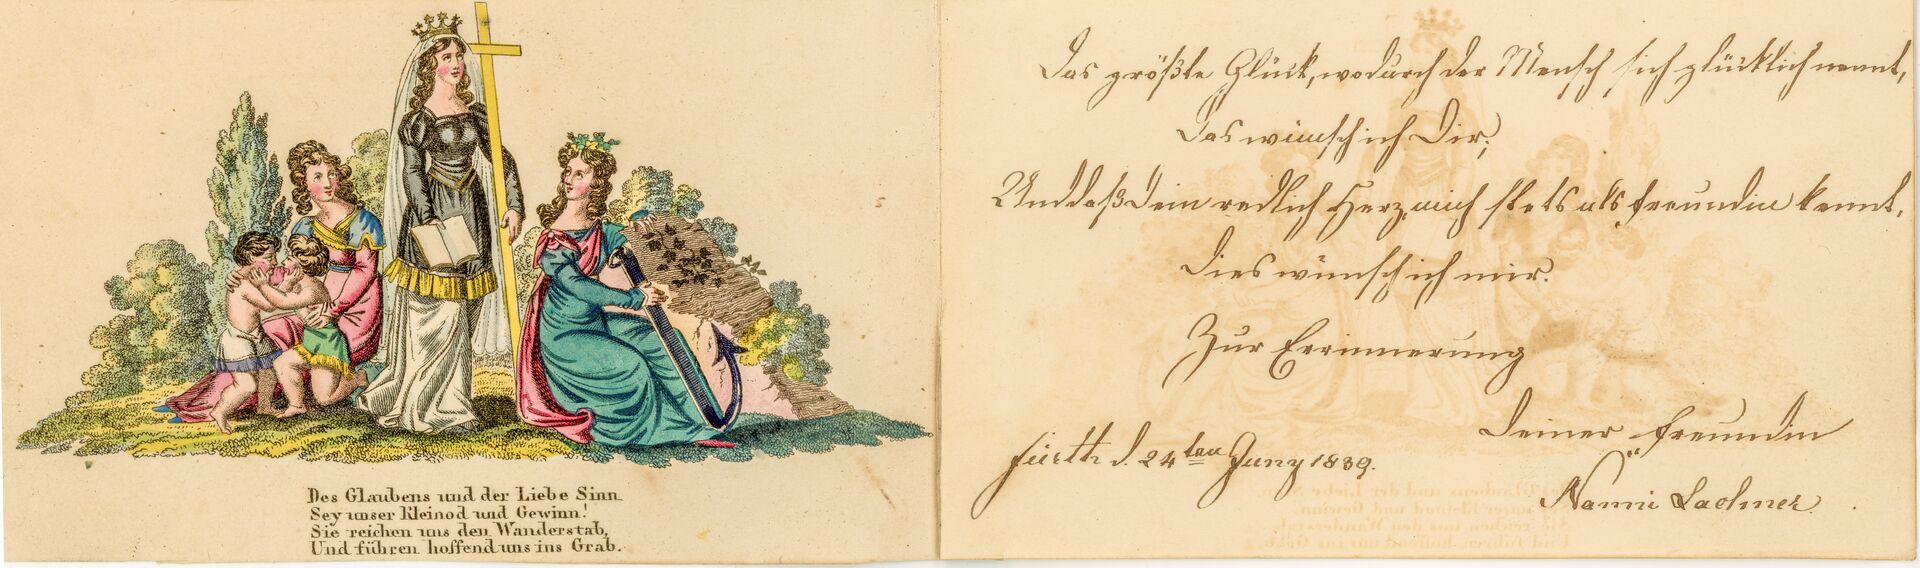 Des Glaubens und der Liebe Sinn
Sey unser Kleinod und Gewinn!
Sie reichen uns den Wanderstab,
Und führen hoffend uns ins Grab.
Das größte Glück, wodurch der Mensch sich glücklich nennt,
Das wünsch ich Dir;
Und daß Dein redlich Herz, mich stets als Freundin kennt,
Dies wünsch ich mir.
Zur Errinnerung
Deiner Freundin
Fürth d. 24ten Juny 1839.
Nanni Lachner